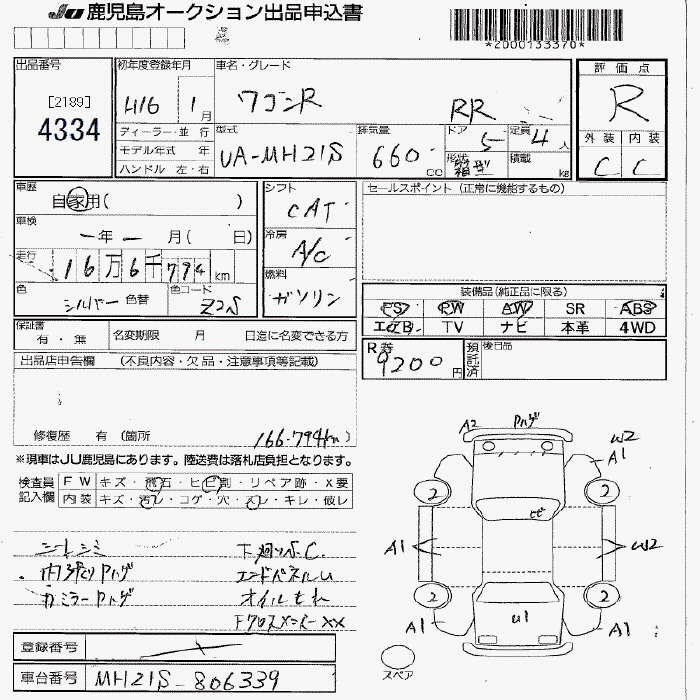 JU 鹿児島オークション出品申込書
*2000133370*
出品番号
[2189]
4334
初年度登録年月
H16 1月
車名・グレード
ワゴンR RR
ディーラー・並 行
モデル年式 年
ハンドル 左・右
型式
UA-MH21S
排気量
660 CC
ドア
5
定員
4人
形状
箱型
積載
kg
評価点
R
外装 内装
C C
車歴
自家用( )
車検
ー年ー月( 日)
走行
16万6千794km
色
シルバー 色替
色コード
Z2S
シフト
CAT
冷房
A/C
燃料
ガソリン
セールスポイント(正常に機能するもの)
装備品(純正品に限る)
PS PW AW SR ABS
エアB TV ナビ 本革 4WD
保証書
有・無
名変期限 月 日迄に名変できる方
R券
9200円
預託済
後日品
出品店申告欄 (不良内容・欠品・注意事項等記載)
修復歴 有 (箇所
166.794km
※現車はJU鹿児島にあります。陸送費は落札店負担となります。
検査員記入欄
FW キズ・飛石・ヒビ割・リペア跡・X要
内装 キズ・汚レ・コゲ・穴・スレ・キレ・破レ
シートシミ
下廻りS.C.
エンドパネルU
オイルもれ
FクロスメンバーXX
A2
W2
A1
2
2
ヒビ
A1
W2
2
2
U1
A1
A1
スペア
登録番号
車台番号
MH21S-806339